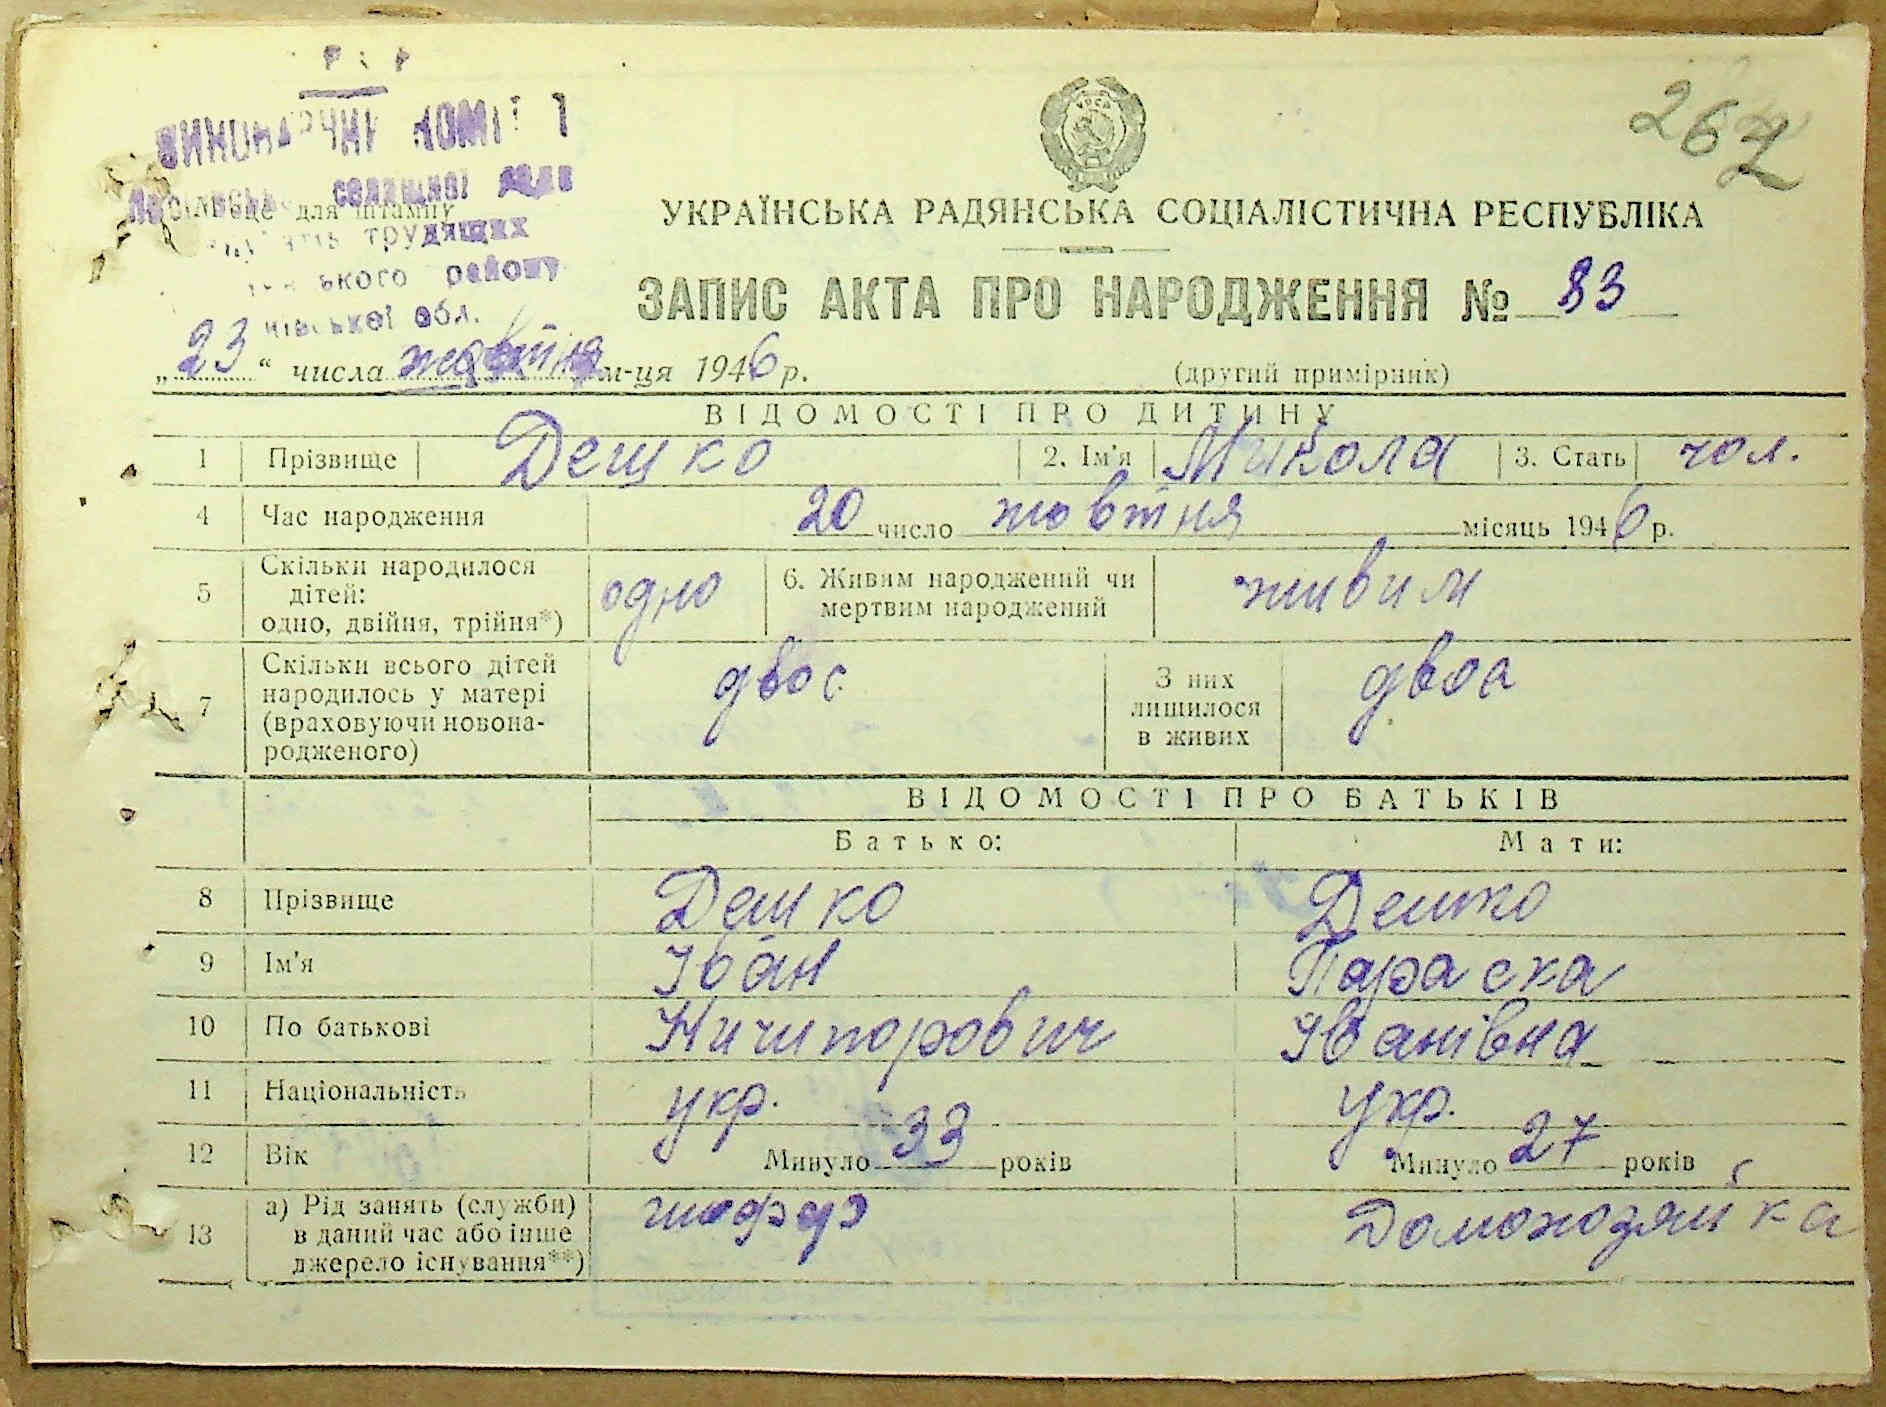 267
УРСР
УКРАЇНСЬКА РАДЯНСЬКА СОЦІАЛІСТИЧНА РЕСПУБЛІКА
ЗАПИС АКТА ПРО НАРОДЖЕННЯ № 83
селищної ради
Місце для штампу
трудящих
району
обл.
„23“ числа жовтня м-ця 1946 р.
(другий примірник)
ВІДОМОСТІ ПРО ДИТИНУ
1 Прізвище Дешко 2. Ім'я Микола 3. Стать чол.
4 Час народження 20 число жовтня місяць 1946 р.
5 Скільки народилося
дітей:
одно, двійня, трійня*)
одно
6. Живим народжений чи
мертвим народжений
живим
7 Скільки всього дітей
народилось у матері
(враховуючи новона-
родженого)
двоє
З них
лишилося
в живих
двоа
ВІДОМОСТІ ПРО БАТЬКІВ
Батько: Мати:
8 Прізвище Дешко Дешко
9 Ім'я Іван Параска
10 По батькові Ничипорович Іванівна
11 Національність укр. укр.
12 Вік Минуло 33 років Минуло 27 років
13 а) Рід занять (служби)
в даний час або інше
джерело існування**)
шофер Домохозяйка